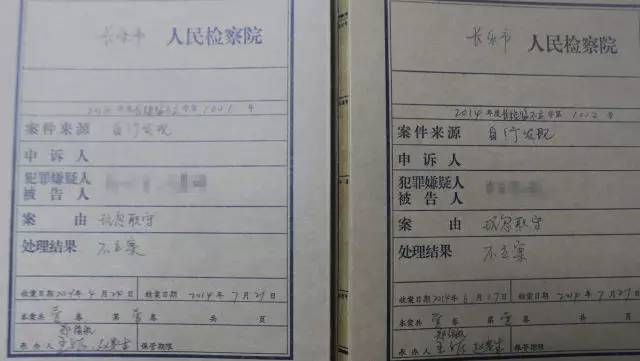 长乐市 人民检察院
2014 年度长检监不立字第 1001 号
案件来源 自行发现
申诉人
犯罪嫌疑人
被告人
案由 玩忽职守
处理结果 不立案
收案日期 2014年4月24日 结案日期 2014年7月29日
本案共 壹 卷 第 壹 卷 共 页
承办人 保管期限
长乐市 人民检察院
2014 年度长检监不立字第 1002 号
案件来源 自行发现
申诉人
犯罪嫌疑人
被告人
案由 玩忽职守
处理结果 不立案
收案日期 2014年6月17日 结案日期 2014年7月29日
本案共 壹 卷 第 壹 卷 共 页
承办人 保管期限